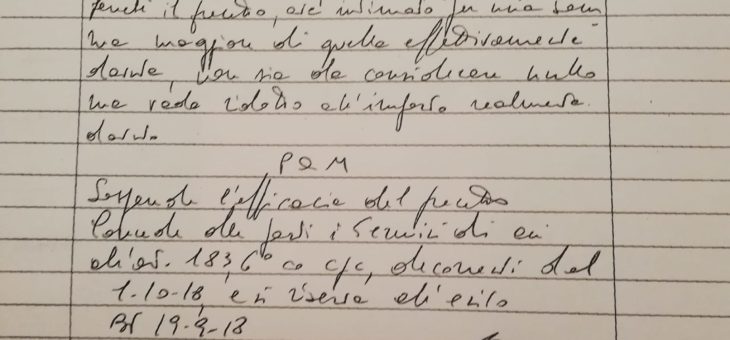 il precetto, ove intimato per una som
ma maggiore di quella effettivamente
dovuta, non sia da considerare nullo
ma vada ridotto all'importo realmente
dovuto.
PQM
Sospende l'efficacia del precetto
Concede alle parti i termini di cui
all'art. 183, 6° co cpc, decorrenti dal
1-10-18, e si riserva all'esito
19-9-18